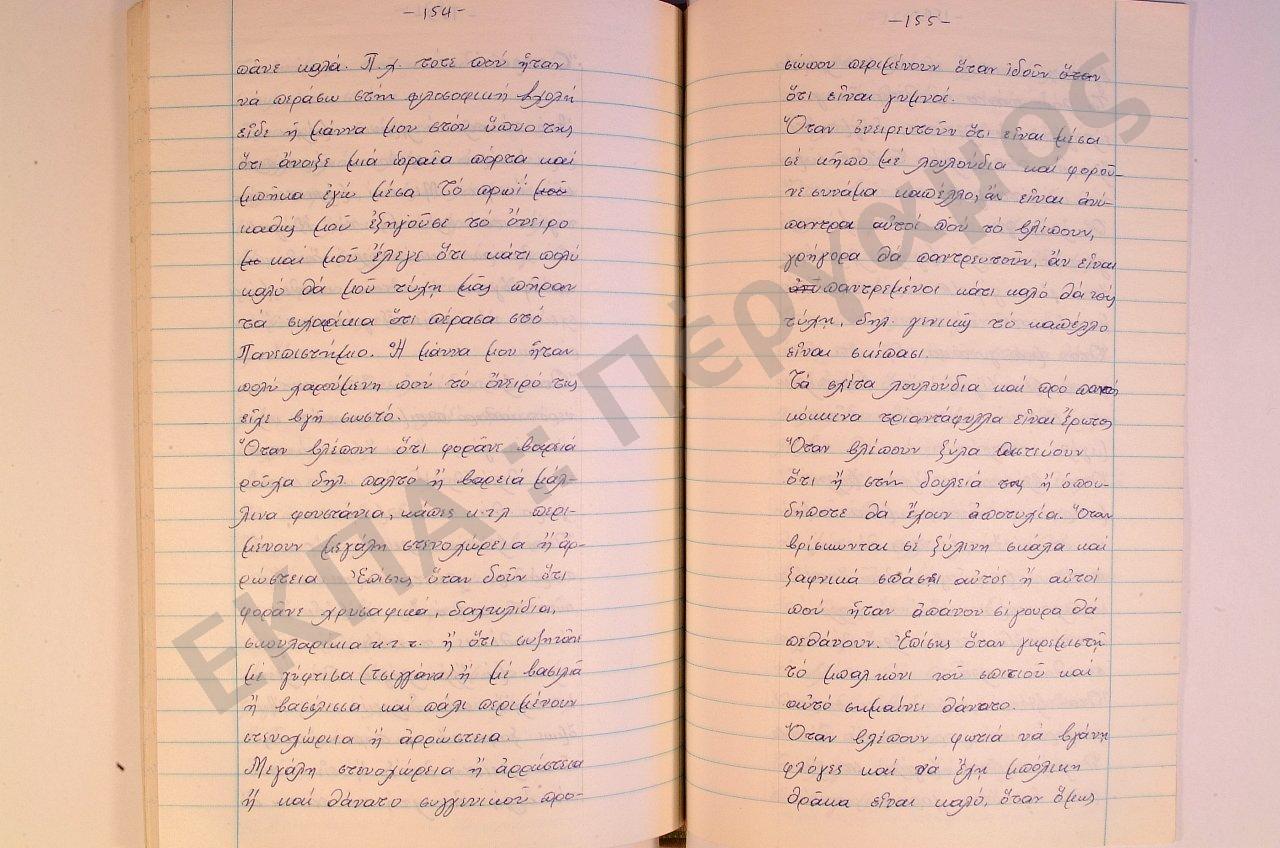 -154-
πᾶνε καλά. Π.χ. τότε πού ἦταν
νά περάσω στήν φιλοσοφική σχολή
εἶδε ἡ μάννα μου στόν ὕπνο της
ὅτι ἄνοιξε μιά ὡραῖα πόρτα καί
μπῆκα ἐγώ μέσα τό πρωΐ μοῦ
καθώς μοῦ ἐξηγοῦσε τό ὄνειρο
μο καί μοῦ ἔλεγε ὅτι κάτι πολύ
καλό θά μοῦ τύχῃ μᾶς πῆραν
τά συχαρίκια ὅτι πέρασα στό
Πανεπιστήμιο. Ἡ μάννα μου ἦταν
πολύ χαρούμενη πού τό ὄνειρό της
εἶχε βγῆ σωστό.
Ὅταν βλέπουν ὅτι φορᾶνε βαρειά
ροῦχα δηλ. παλτό ἤ βαρειά μάλ-
λινα φουστάνια, κάπες κ.τ.λ περι-
μένουν μεγάλη στενοχώρεια ἤ ἀρ-
ρώστεια. Ἐπίσης ὅταν δοῦν ὅτι
φορᾶνε χρυσαφικά, δαχτυλίδια,
σκουλαρίκια κ.τ.τ. ἤ ὅτι συζητᾶνε
μέ γύφτισα (τσιγγάνα) ἤ μέ βασιλιᾶ
ἤ βασίλισσα καί πάλι περιμένουν
στενοχώρεια ἤ ἀρρώστεια.
Μεγάλη στενοχώρεια ἤ ἀρρώστεια
ἤ καί θάνατο συγγενικοῦ προ-
-155-
σώπου περιμένουν ὅταν ἰδοῦν ὅταν
ὅτι εἶναι γυμνοί.
Ὅταν ὀνειρευτοῦν ὅτι εἶναι μέσα
σέ κῆπο μέ λουλούδια καί φοροῦ-
νε συνάμα καπέλλο, ἄν εἶναι ἀνύ-
παντροι αὐτοί πού τό βλέπουν,
γρήγορα θά παντρευτοῦν, ἄν εἶναι
παντρεμένοι κάτι καλό θά τούς
τύχῃ, δηλ. γενικῶς τό καπέλλο
εἶναι σκέπασι.
Τά σκέτα λουλούδια καί πρό παντός
κόκκινα τριαντάφυλλα εἶναι ἔρωτας
Ὅταν βλέπουν ξύλα πιστεύουν
ὅτι ἤ στήν δουλειά τους ἤ ὁπου-
δήποτε θά ἔχουν ἀποτυχία. Ὅταν
βρίσκωνται σέ ξύλινη σκάλα καί
ξαφνικά σπάσει αὐτός ἤ αὐτοί
πού ἦταν ἀπάνου σίγουρα θά
πεθάνουν. Ἐπίσης ὅταν γκρεμιστῆ
τό μπαλκόνι τοῦ σπιτιοῦ καί
αὐτό σημαίνει θάνατο.
Ὅταν βλέπουν φωτιά νά βγάνῃ
φλόγες καί νά ἔχῃ μπόλικη
θράκα εἶναι καλό, ὅταν ὅμως
ΕΚΠΑ :: Πέργαμος